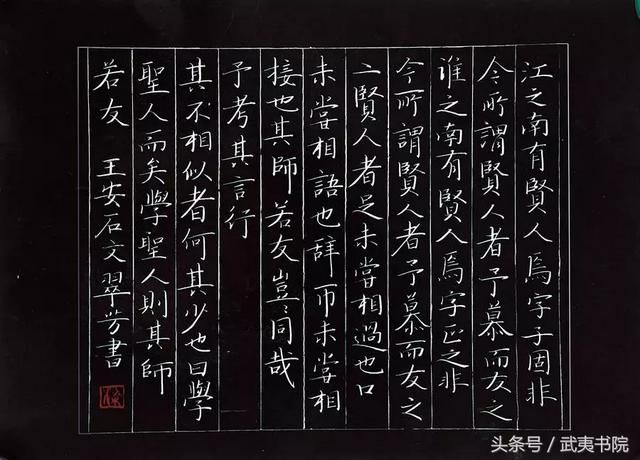 江之南有賢人焉字子固非
今所謂賢人者予慕而友之
淮之南有賢人焉字正之非
今所謂賢人者予慕而友之
二賢人者足未嘗相過也口
未嘗相語也辞币未嘗相
接也其師若友豈〻同哉
予考其言行
其不相似者何其少也曰學
聖人而矣學聖人則其師
若友 王安石文翠芳書
头条号/武夷书院